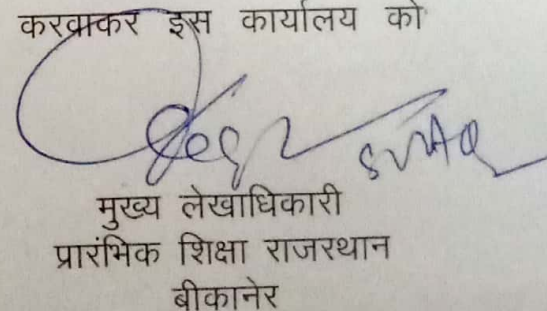 करवाकर इस कार्यालय को
मुख्य लेखाधिकारी
प्रारंभिक शिक्षा राजस्थान
बीकानेर